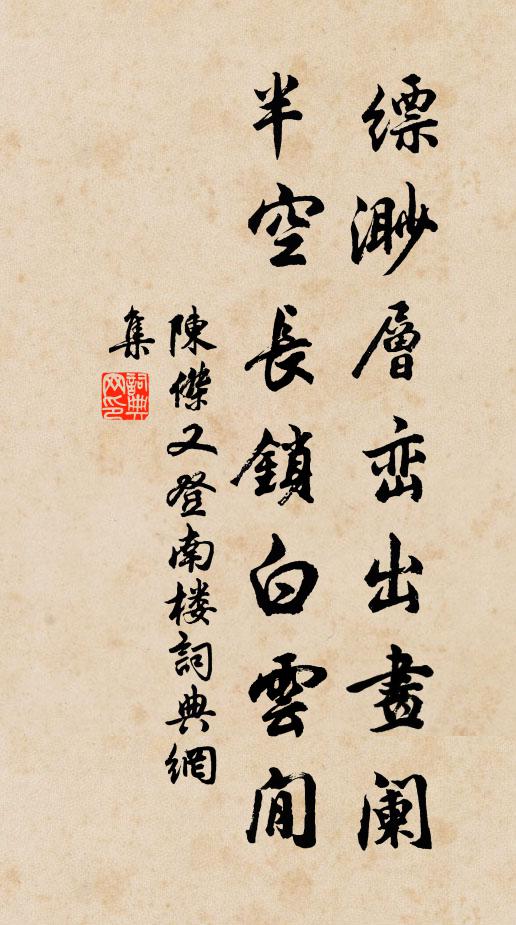 缥渺層峦出畫阑
半空長鎖白雲間
陳傑又登南楼詞典網
集
詞典网印